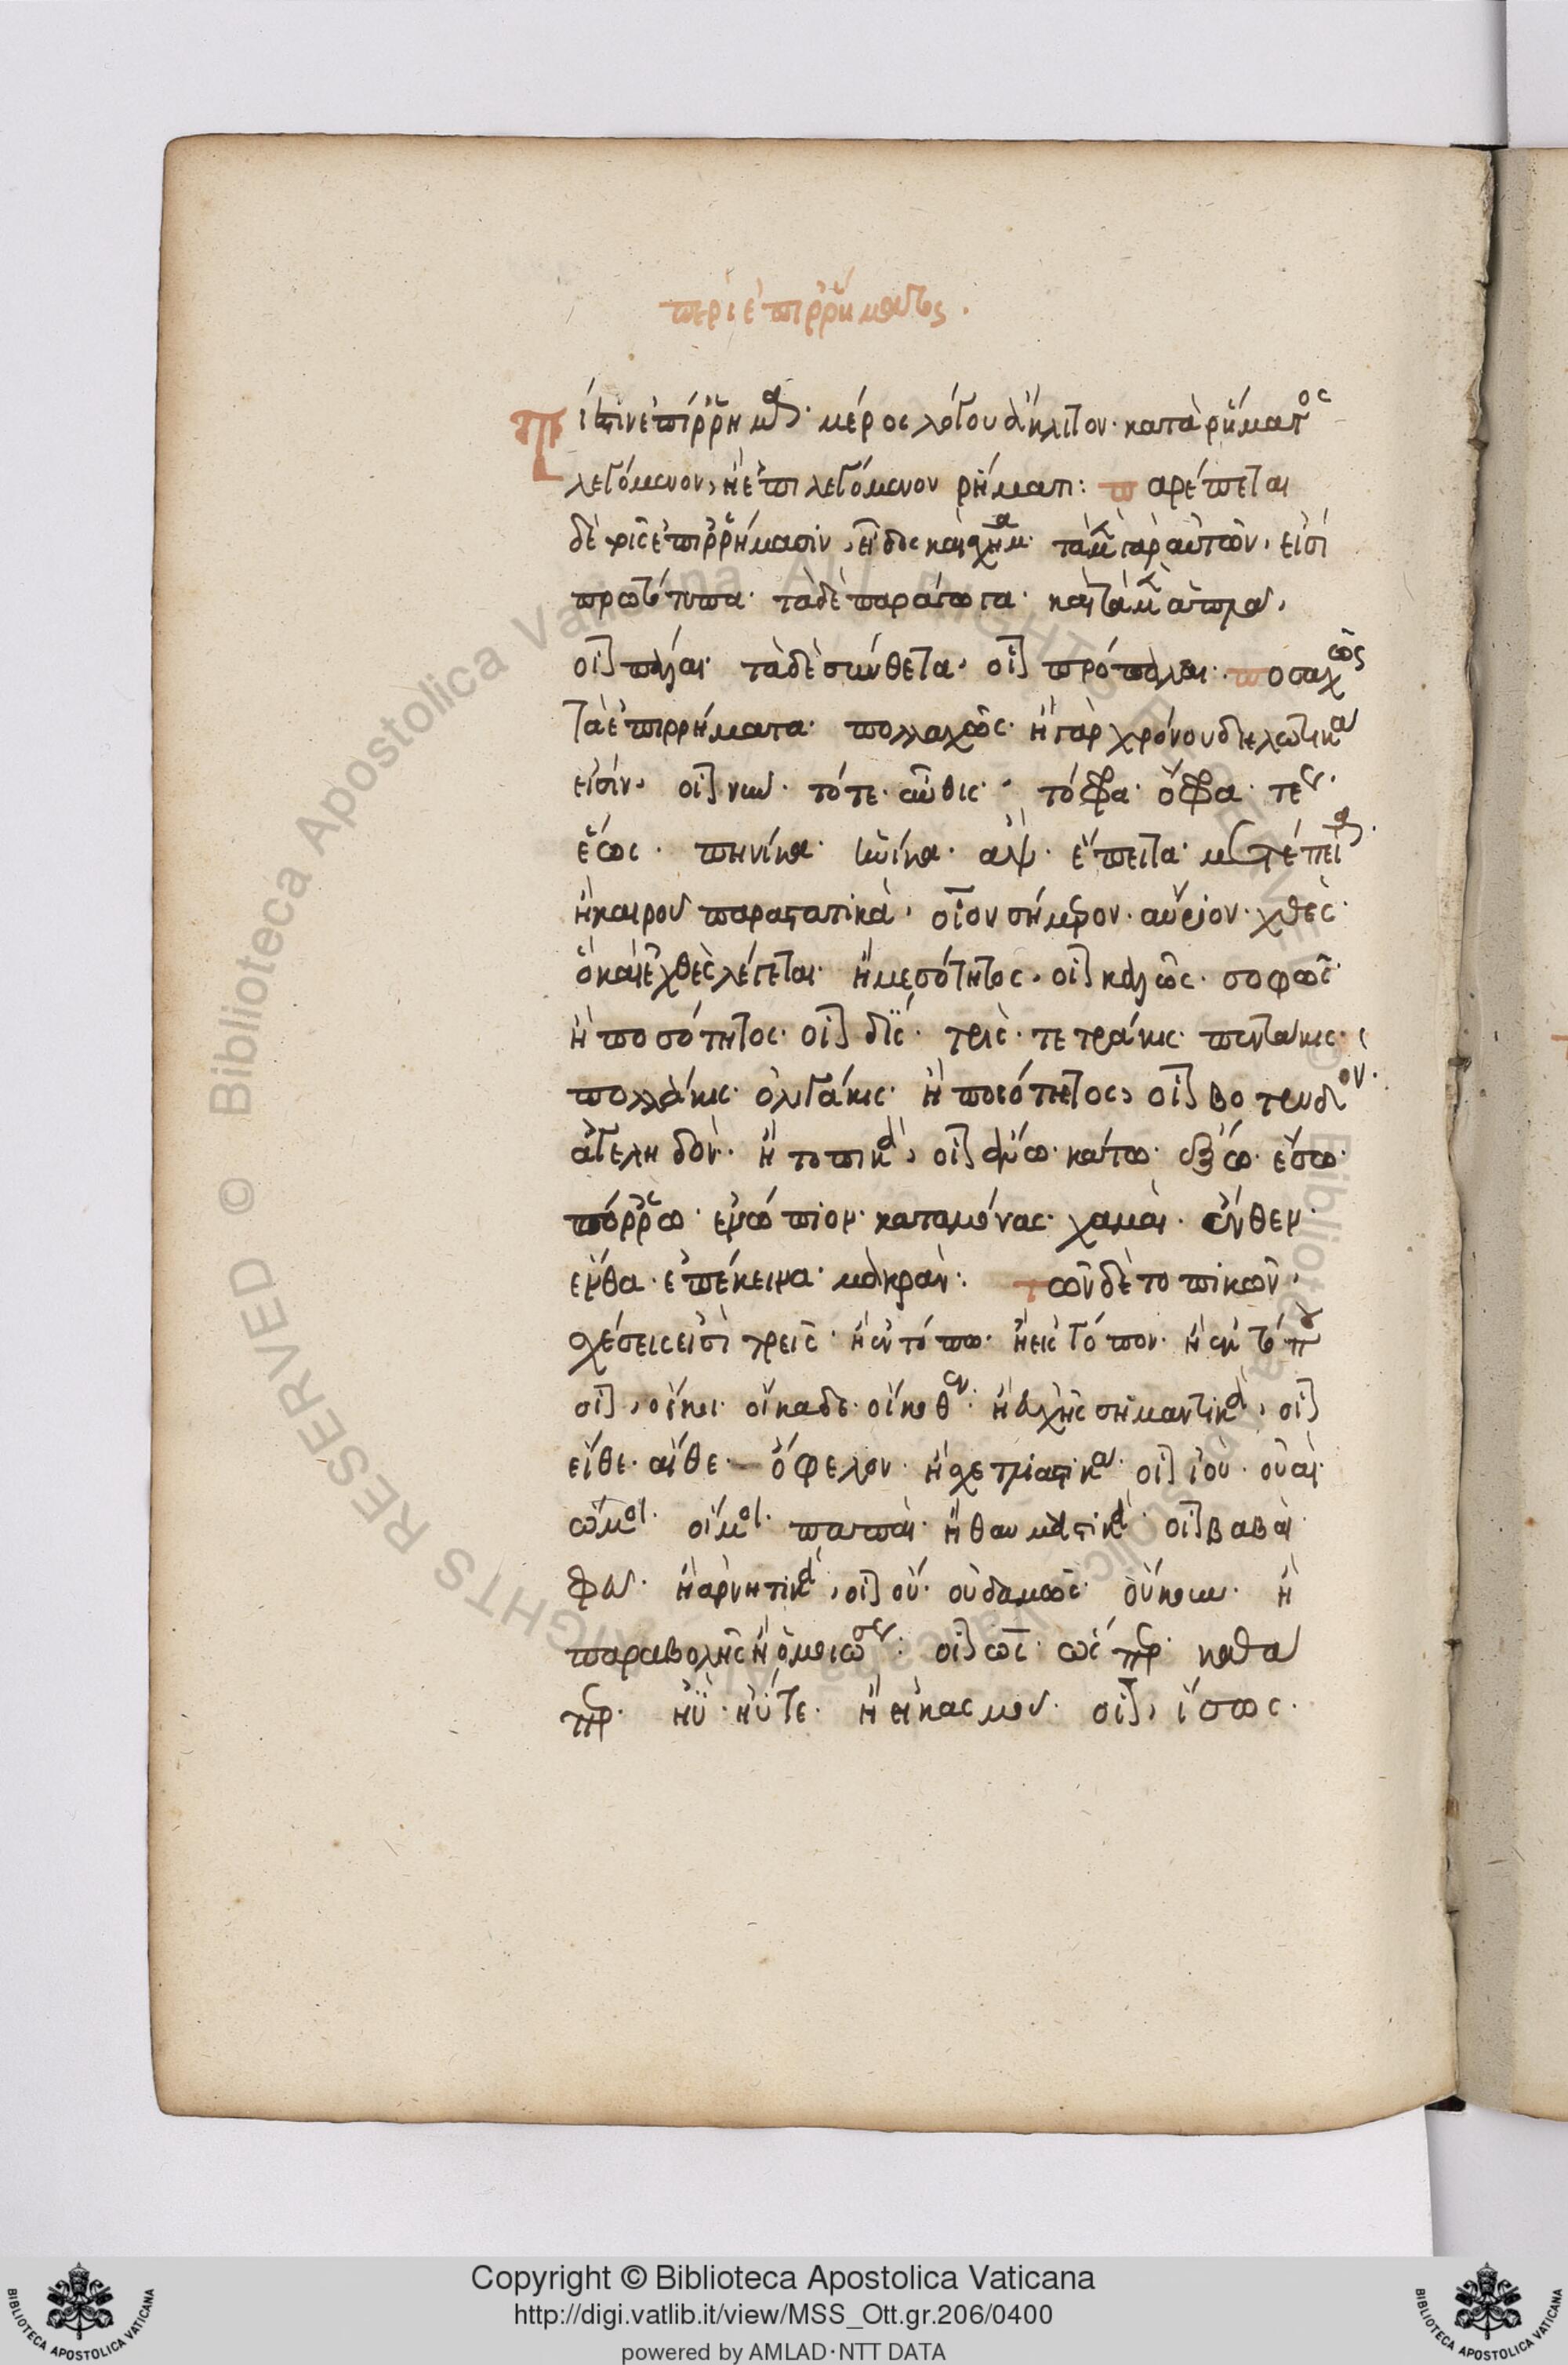 περὶ ἐπιρρήματος.
Τί ἐστιν ἐπίρρημα· μέρος λόγου ἄκλιτον· κατὰ ῥήματος
λεγόμενον, ἢ ἐπιλεγόμενον ῥήματι: παρέπεται
δὲ τοῖς ἐπιρρήμασιν, εἶδος καὶ σχῆμα· τὰ μὲν γὰρ αὐτῶν, εἰσὶ
πρωτότυπα· τὰ δὲ παράγωγα· καὶ τὰ μὲν ἁπλᾶ,
οἷον πάλαι· τὰ δὲ σύνθετα, οἷον πρόπαλαι· ποσαχῶς
τὰ ἐπιρρήματα· πολλαχῶς· ἢ γὰρ χρόνου δηλωτικὰ
εἰσίν, οἷον νῦν· τότε· αὖθις· τόφρα· ὄφρα· τέως·
ἕως· πηνίκα· ἡνίκα· αἶψα· ἔπειτα· μετέπειτα·
ἢ καιροῦ παραστατικὰ, οἷον σήμερον· αὔριον· χθὲς·
ὃ καὶ ἐχθὲς λέγεται· ἢ μεσότητος, οἷον καλῶς· σοφῶς·
ἢ ποσότητος· οἷον δὶς· τρὶς· τετράκις· πεντάκις·
πολλάκις· ὀλιγάκις· ἢ ποιότητος, οἷον βοτρυδόν·
ἀγεληδόν· ἢ τοπικὰ, οἷον ἄνω· κάτω· ἔξω· ἔσω·
πόρρω· ἐνώπιον· καταμόνας· χαμαὶ· ἔνθεν·
ἔνθα· ἐπέκεινα· μακράν: τῶν δὲ τοπικῶν,
σχέσεις εἰσὶ τρεῖς· ἢ ἐν τόπω· ἢ εἰς τόπον· ἢ ἐκ τόπου
οἷον, οἴκοι· οἴκαδε· οἴκοθεν· ἢ εὐχῆς σημαντικὰ, οἷον
εἴθε· αἴθε· ὄφελον· ἢ σχετλιαστικὰ· οἷον ἰοὺ· οὐαὶ·
ὤμοι· οἴμοι· παπαὶ· ἢ θαυμαστικὰ· οἷον βαβαὶ·
φεῦ· ἢ ἀρνητικὰ, οἷον οὔ· οὐδαμῶς· οὔκουν· ἢ
παραβολῆς ἢ ὁμοιώσεως· οἷον ὡς· ὥσπερ· καθά
περ· ἠΰ· ἠΰτε· ἢ εἰκασμοῦ· οἷον, ἴσως·
Copyright © Biblioteca Apostolica Vaticana
http://digi.vatlib.it/view/MSS_Ott.gr.206/0400
powered by AMLAD·NTT DATA